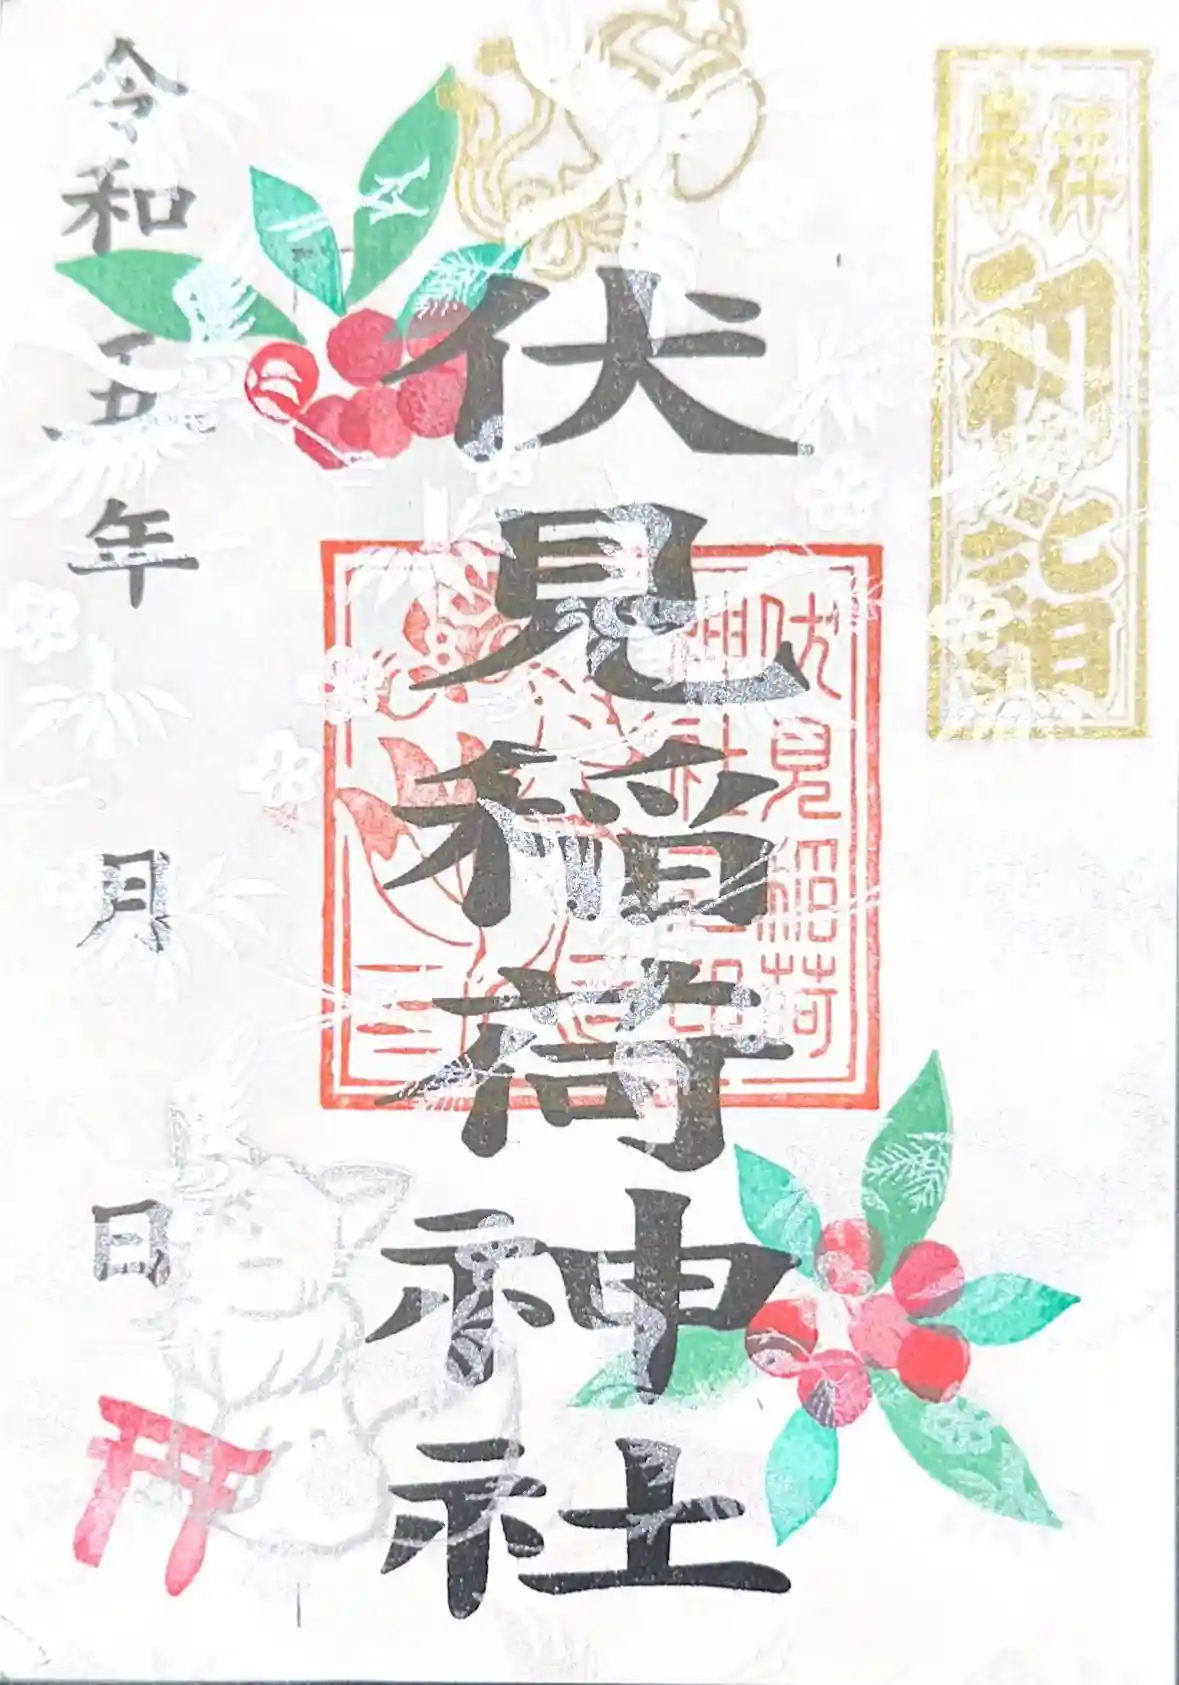 奉拝
初詣
伏見稲荷神社
伏見稲荷
神社
令和五年 月 日